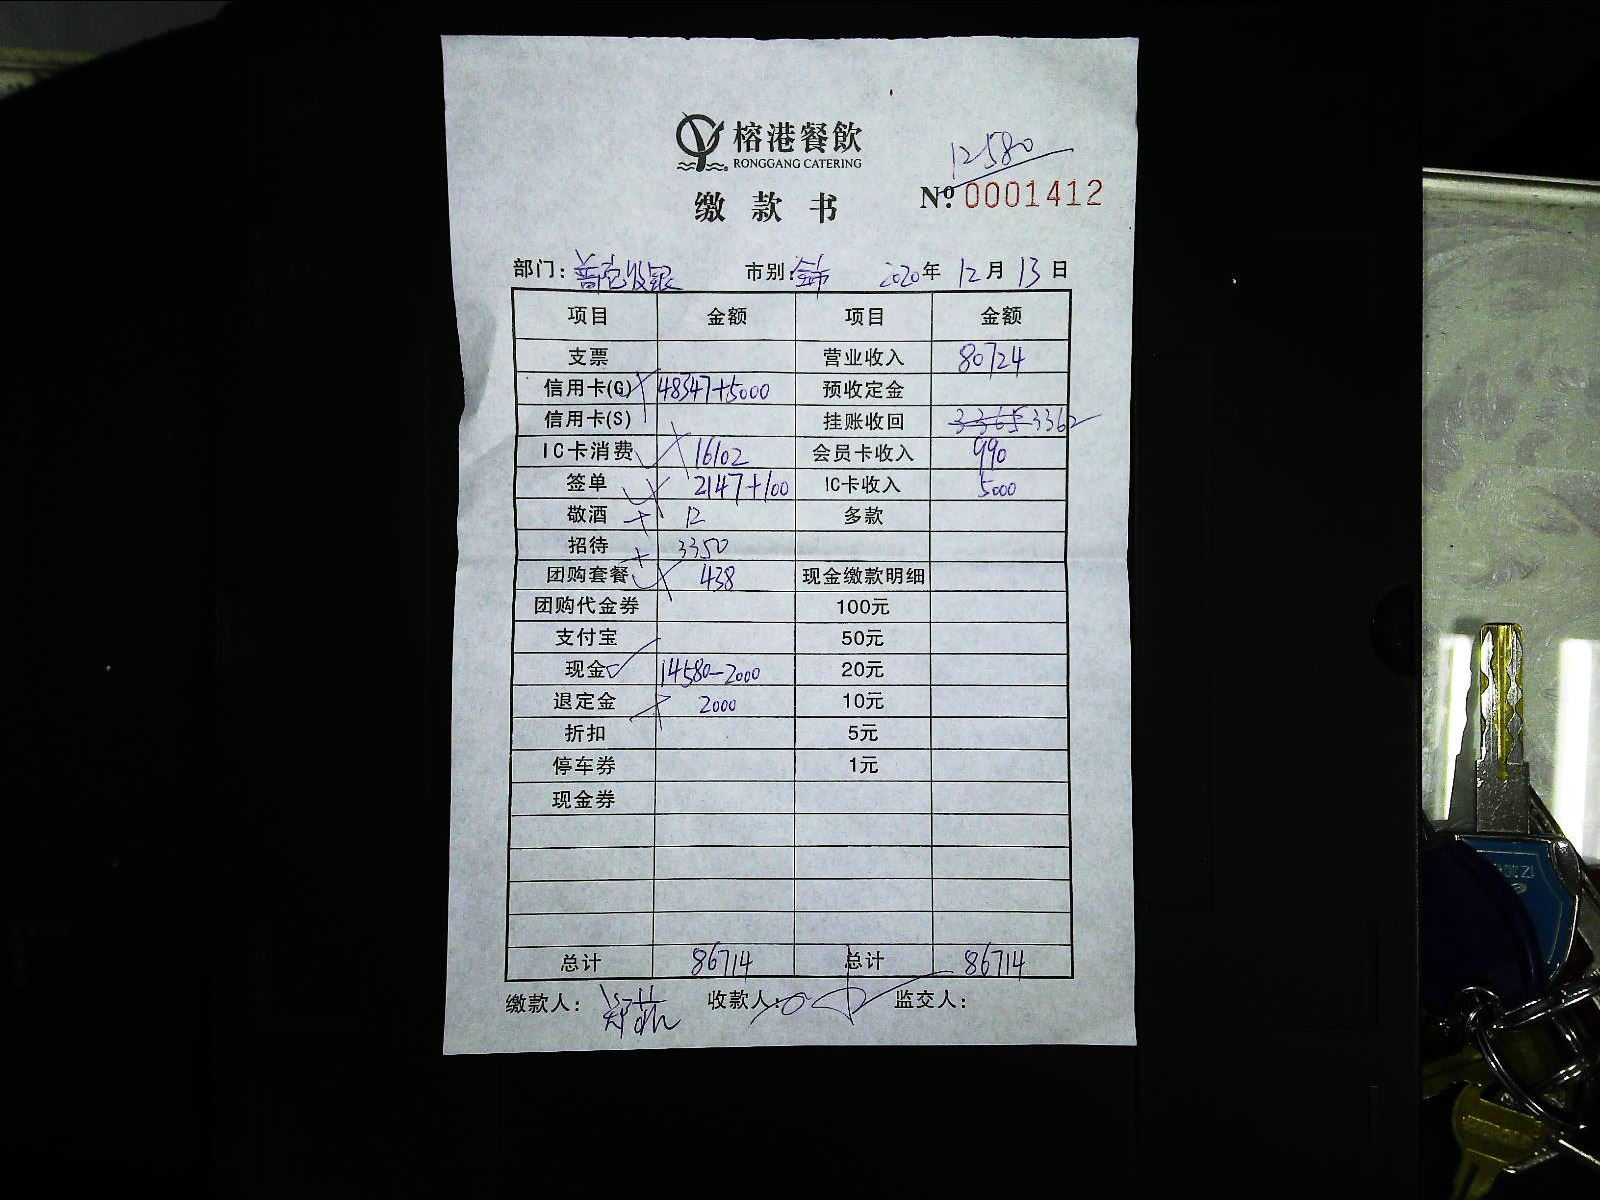 榕港餐飲
RONGGANG CATERING
12580
缴款书
№ 0001412
部门: 市别: 2020年12月13日
项目 金额 项目 金额
支票 营业收入 80724
信用卡(G) 48347+5000 预收定金
信用卡(S) 挂账收回 3365 3362
IC卡消费 16102 会员卡收入 990
签单 2147+100 IC卡收入 5000
敬酒 12 多款
招待 3350
团购套餐 438 现金缴款明细
团购代金券 100元
支付宝 50元
现金 14580-2000 20元
退定金 2000 10元
折扣 5元
停车券 1元
现金券
总计 86714 总计 86714
缴款人: 收款人: 监交人: